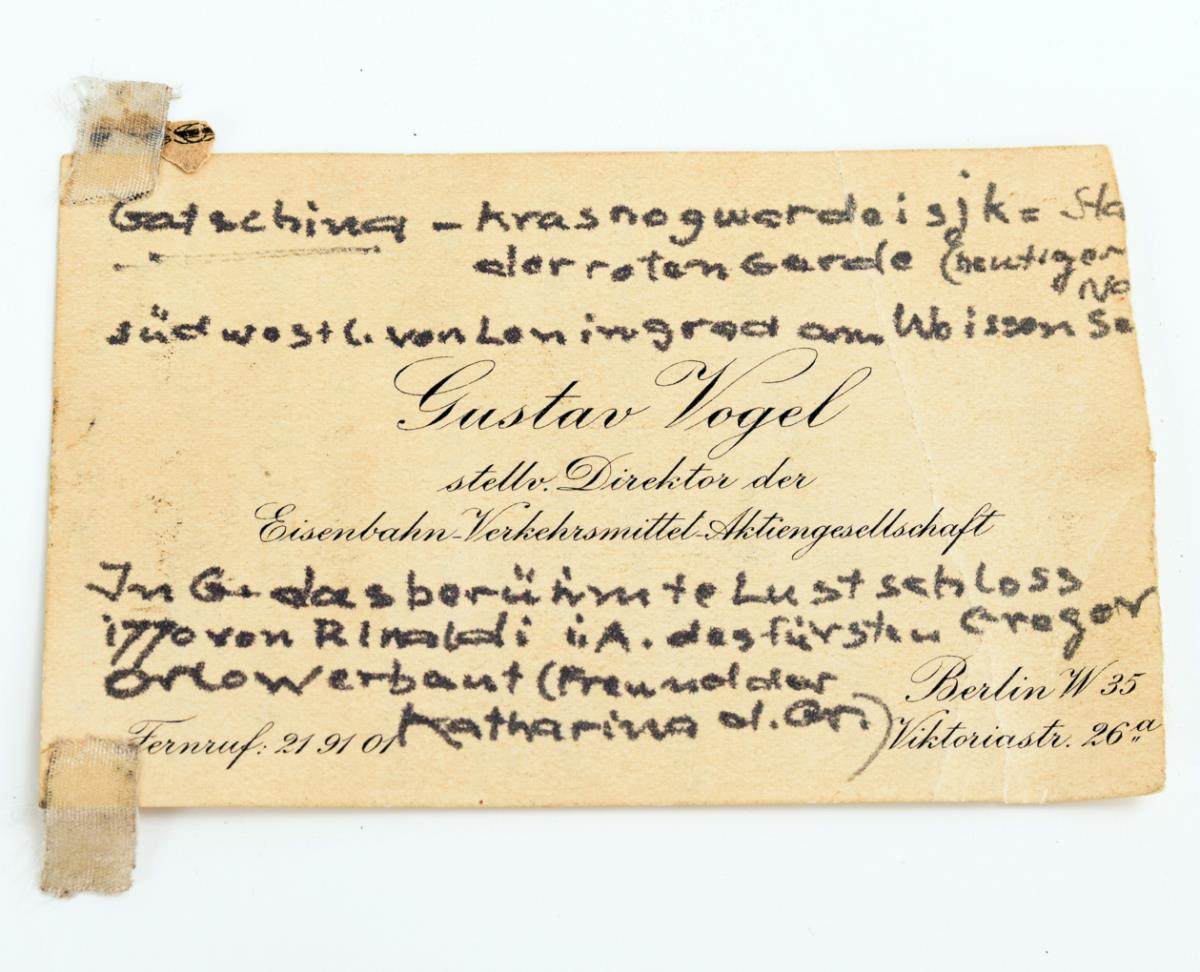 Gatschina - Krasnogwardeisjk = Sta
der roten Garde (heutiger
Na
südwestl. von Leningrad am Weissen Se
Gustav Vogel
stellv. Direktor der
Eisenbahn-Verkehrsmittel-Aktiengesellschaft
In G. das berühmte Lustschloss
1770 von Rinaldi i. A. des Fürsten Gregor
Orlow erbaut (Freund der
Katharina d. Gr.)
Berlin W 35
Fernruf: 21 91 01
Viktoriastr. 26 a